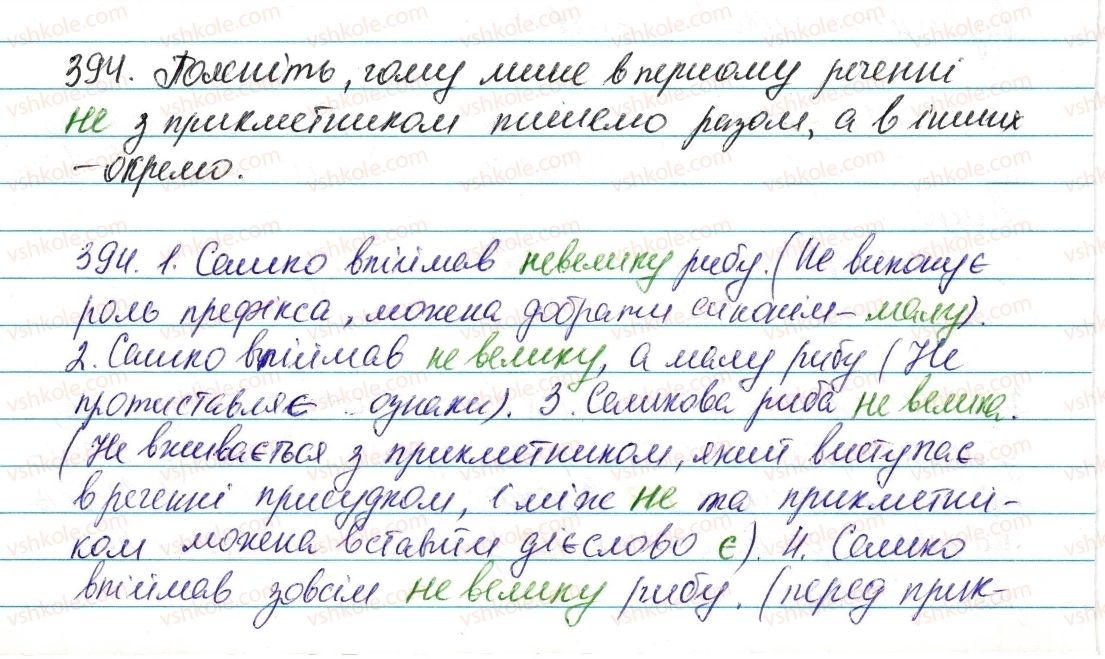 394. Поясніть, чому лише в першому реченні
не з прикметником пишемо разом, а в інших
– окремо.
394. 1. Сашко впіймав невелику рибу. (Не виконує
роль префікса, можна добрати синонім – малу).
2. Сашко впіймав не велику, а малу рибу (Не
протиставляє ознаки). 3. Сашкова риба не велика.
(Не вживається з прикметником, який виступає
в реченні присудком, і між не та прикметни-
ком можна вставити дієслово є). 4. Сашко
впіймав зовсім не велику рибу. (перед прик-
vshkole.com